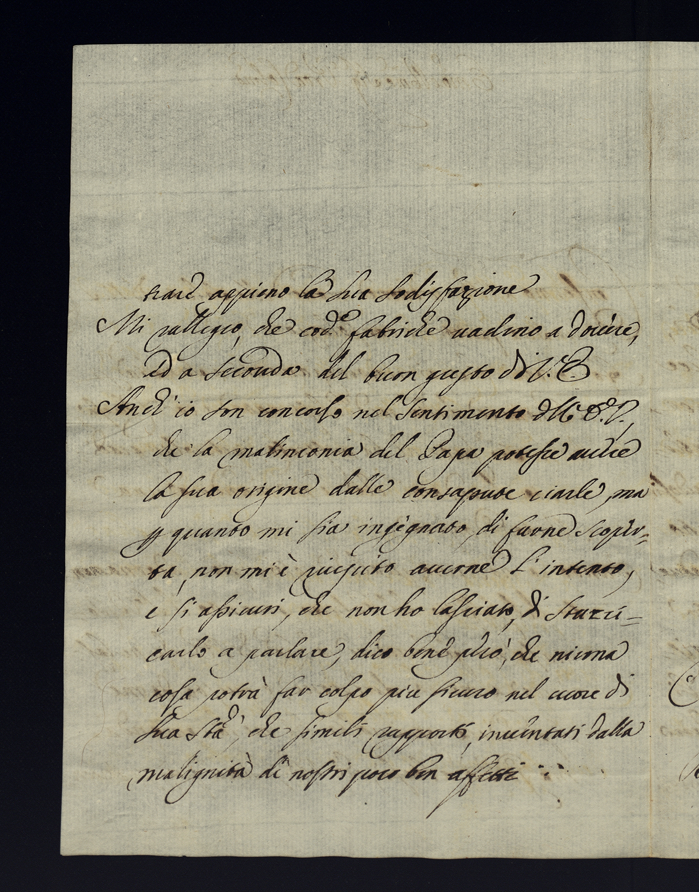 trarè appieno la sua sodisfazione
Mi rallegro, che cod.e fabriche vadino a dovere,
ed a seconda del buon gusto di V. E.
Anch' io son concorso nel sentimento dell' E. V.,
che la malinconia del Papa potesse avere
la sua origine dalle consapute ciarle, ma
p quanto mi sia ingegnato, di farne scoper-
ta, non mi è riuscito averne l' intento,
e si assicuri, che non ho lasciato, di stuzzi-
carlo a parlare, dico bene però, che niuna
cosa potrà far colpo più sicuro nel cuore di
Sua Stà, che simili rapporti inventati dalla
malignità di nostri poco ben affetti